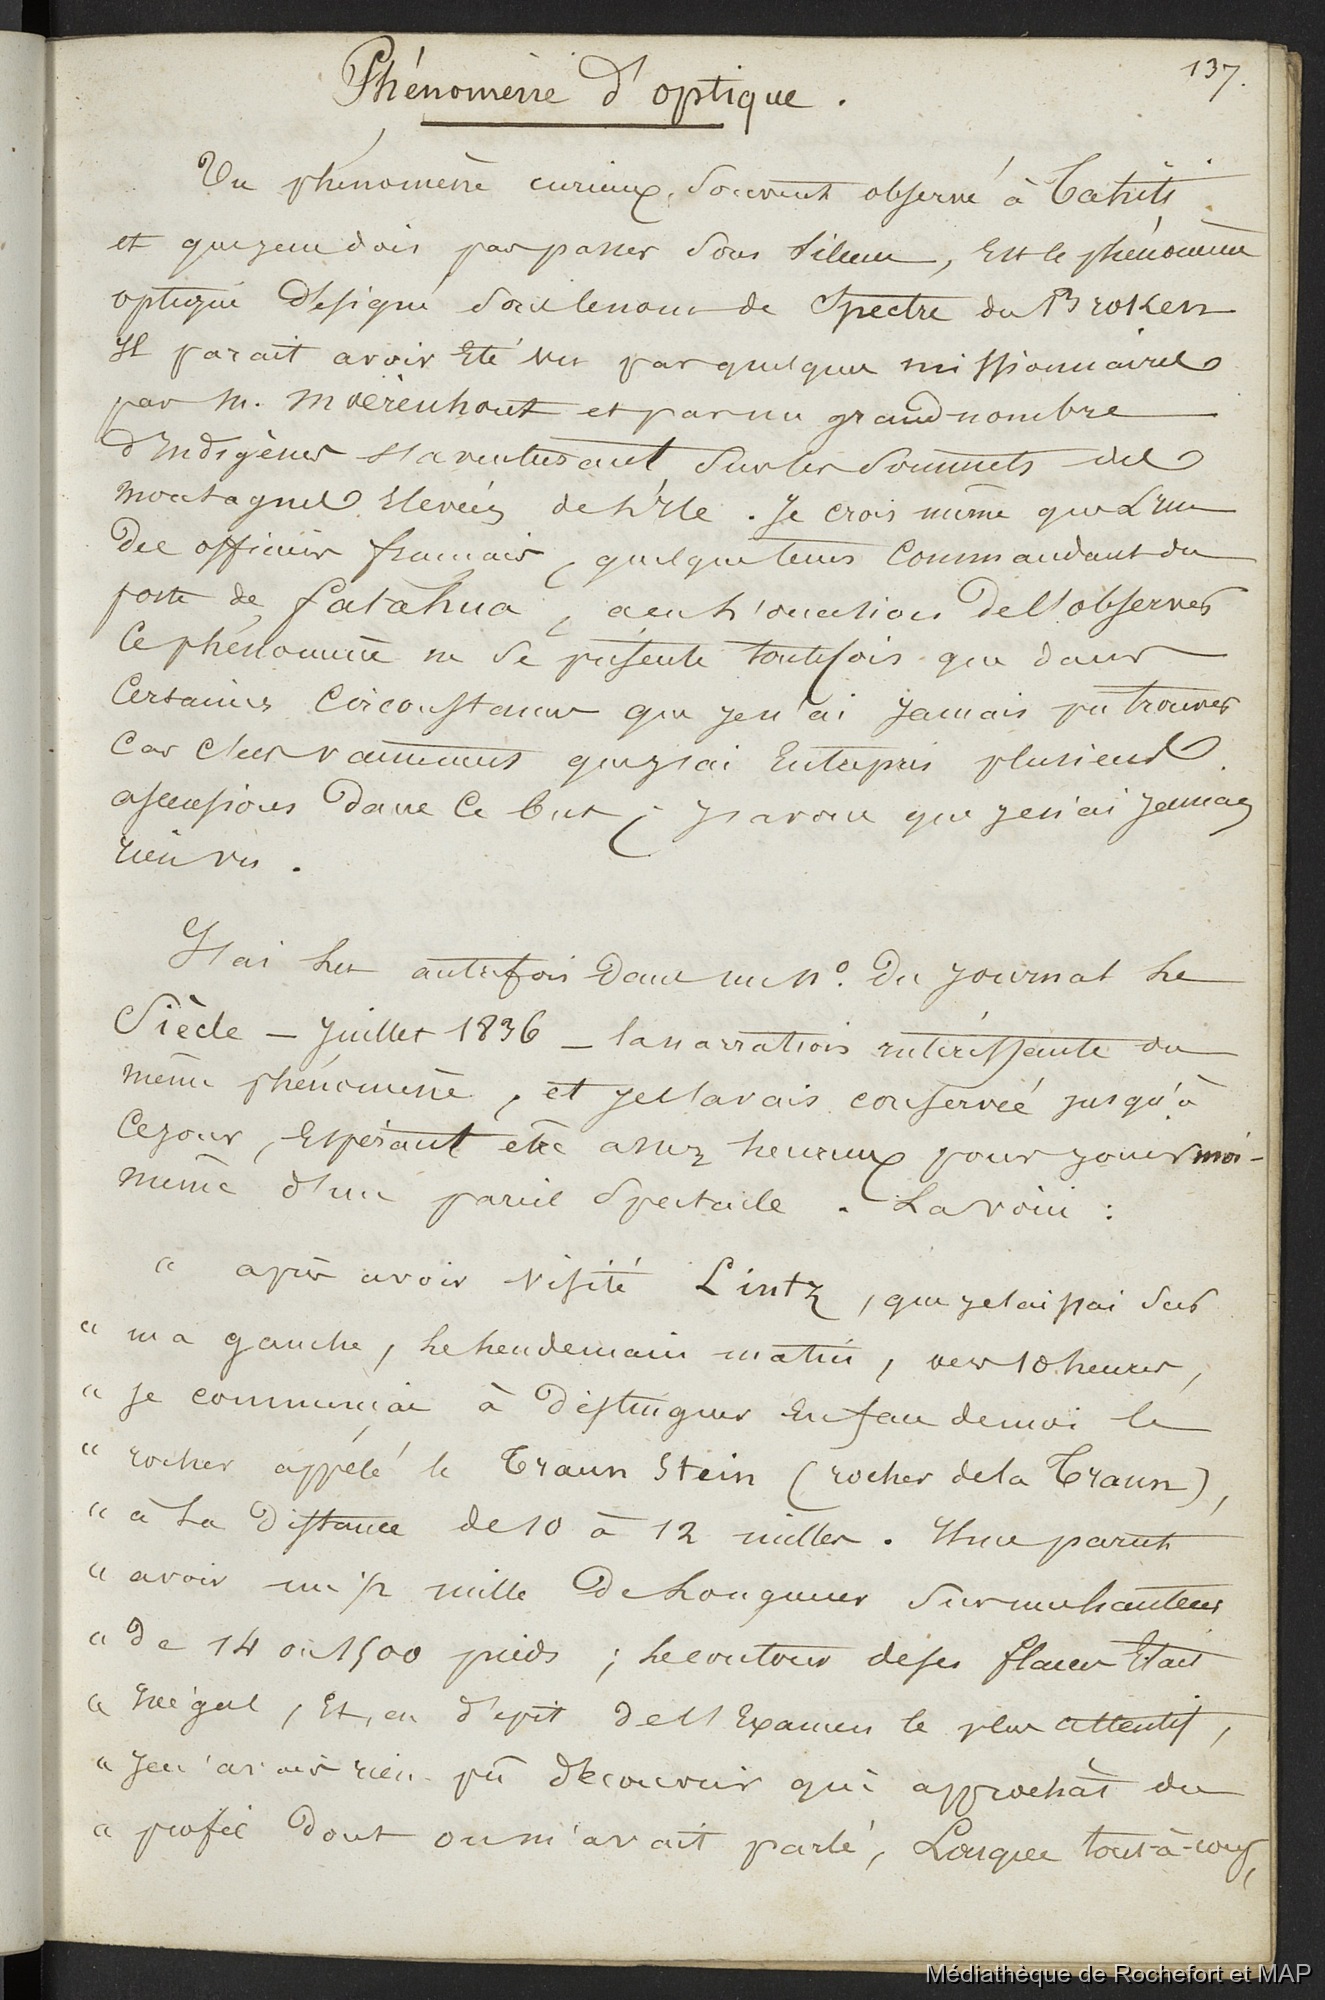 137.
Phénomène d'optique.
Un phénomène curieux, souvent observé à Tahiti
et que je ne dois pas passer sous silence, est le phénomène
optique désigné sous le nom de Spectre du Broken
Il parait avoir été vu par quelques missionnaires
par M. Moërenhout et par un grand nombre
d'Indigènes s'aventurant sur les sommets des
montagnes élevées de l'Ile. Je crois même que l'un
des officiers français, quelque tems commandant du
poste de fatahua, a eu l'occasion de l'observer
Ce phénomène ne se présente toutefois que dans
certaines circonstances que je n'ai jamais pu trouver
car c'est vainement que j'ai entrepris plusieurs
ascensions dans ce but; j'avoue que je n'ai jamais
rien vu.
J'ai lu autrefois dans un n°. du journal le
Siècle - Juillet 1836 - la narration intéressante du
même phénomène, et je l'avais conservée jusqu'à
ce jour, espérant être assez heureux pour jouir moi-
même d'un pareil spectacle. La voici :
" après avoir visité Lintz, que je laissai sur
" ma gauche, le lendemain matin, vers 10 heures,
" je commençai à distinguer en face de moi le
" rocher appélé le Traun Stein (rocher de la Traun),
" à la distance de 10 à 12 milles. Il me parut
" avoir un 1/2 mille de longueur sur une hauteur
" de 14 ou 1500 pieds ; le contour de ses flancs était
" inégal, et, en dépit de l'examen le plus attentif,
" je n'avais rien pu découvrir qui approchât du
" profil dont on m'avait parlé, Lorsque tout-à-coup,
Médiathèque de Rochefort et MAP